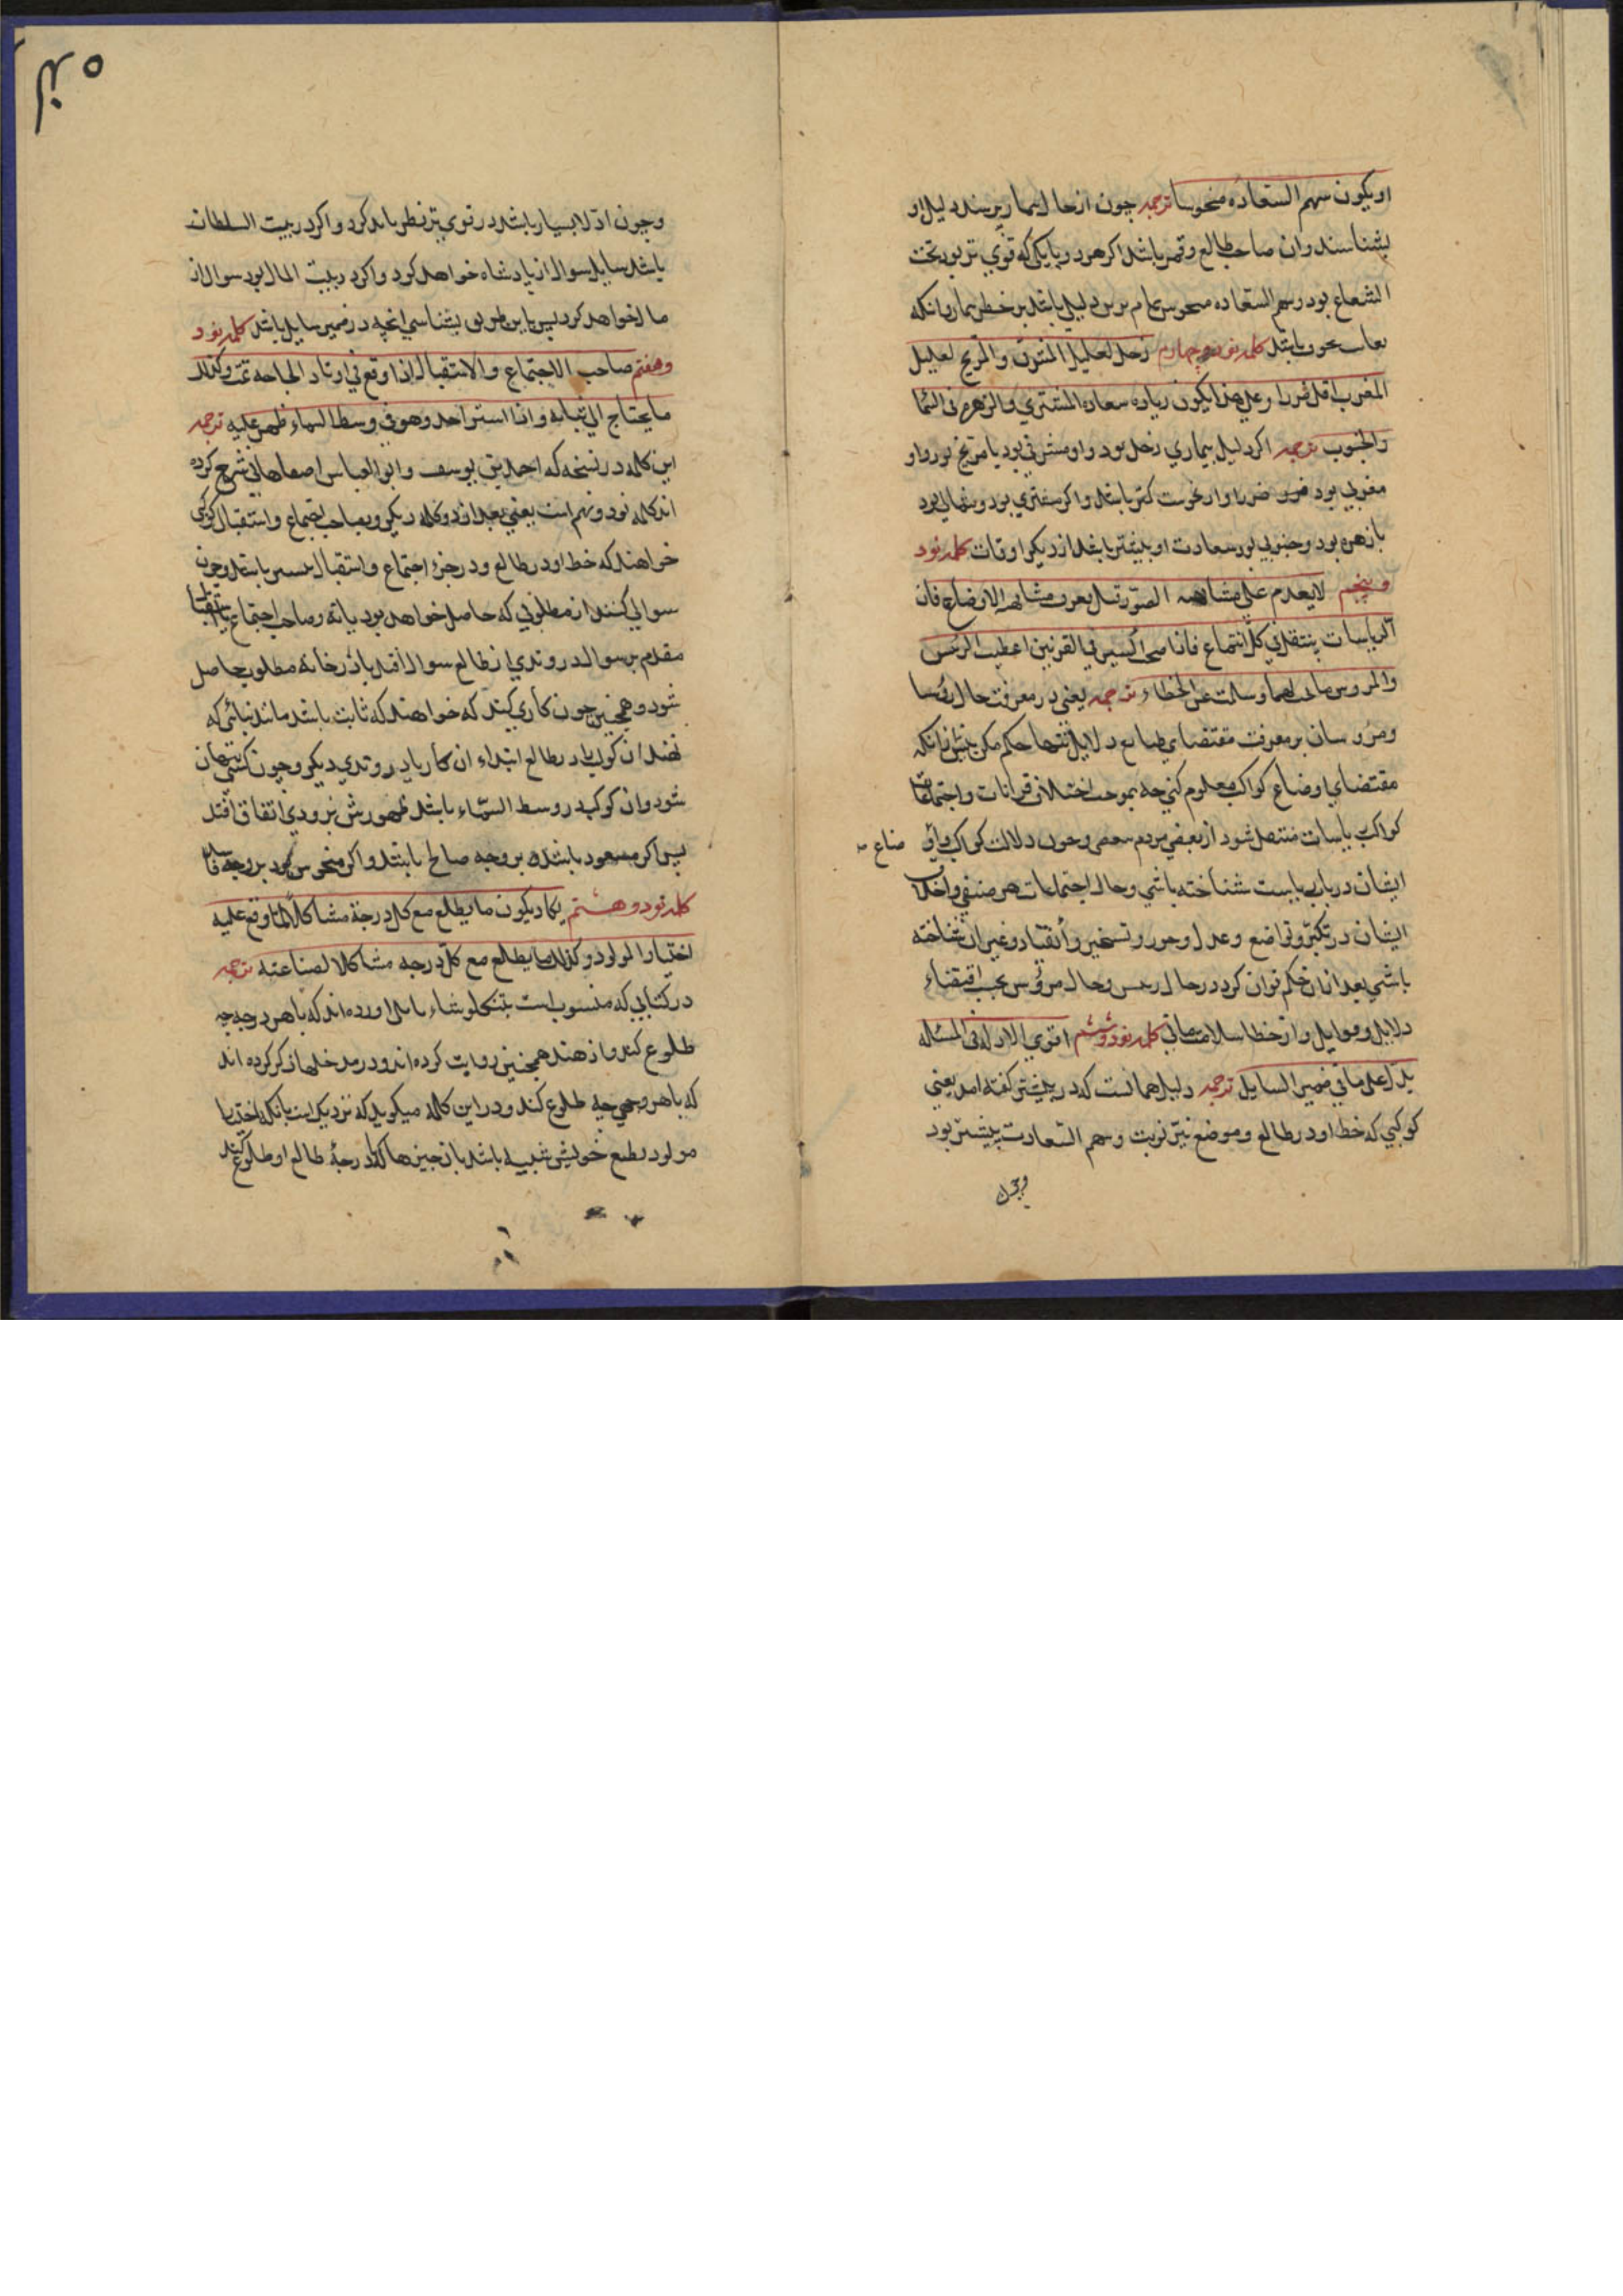 او یکون سهم السعاده منحوسا ترجمه چون از حال بیمار پرسند دلیل او
بشناسند وان صاحب طالع وقمر باشد اکر هر دو یا یکی که قوی تر بود تحت
الشعاع بود وسهم السعاده منحوس دلیل باشد بر خطر بیمار
باشد کلمه نود وچهارم زحل لعلیل المشرق والمریخ لعلیل
المغرب اقل ضررا وعلی هذا یکون زیاده سعاده المشتری والزهره فی الشمال
والجنوب ترجمه اکر دلیل بیماری زحل بود واو مشرقی بود یا مریخ بود واو
مغربی بود ضرر او از نحوست کمتر باشد واکر مشتری بود وشمالی بود
یا زهره بود وجنوبی بود سعادت او بیشتر باشد از دیکر اوقات کلمه نود
وپنجم لا یقدم علی مشابهه الصور قبل یعرف مشابهه الاوضاع فان
الیابسات ینتقل فی کل اجتماع فاذا فی القرنین اعطیت الرئیس
والمروس لهما وسلمت عن الخطاء ترجمه یعنی در معرفت حال رؤسا
ومروسان بر معرفت مقتضای طبایع دلایل تنها حکم مکن پیش ازانکه
مقتضای اوضاع کواکب معلوم کنی چه بموجب اختلاف قرانات واجتماعات
کواکب بیابسات منتقل شود از بعضی مردم ببعضی وچون دلالت کواکب
ایشان در باب شناخته باشی وحال اجتماعات هر صنفی واختلاف
ایشان در تکبر وتواضع وعدل وجور وتسخیر وانقیاد وغیر ان شناخته
باشی بعد ازان حکم توان کرد در حال رئیس وحال مرؤس بحسب اقتضاء
دلایل وقوابل واز خطا سلامت مانی کلمه نود وششم اقوی الادله فی المسئله
یدل علی ما فی ضمیر السایل ترجمه دلیل همانست که در پیشتر کفته امد یعنی
کوکبی که حظ او در طالع وموضع نیر نوبت وسهم السعادت بیشتر بود
وچون
وچون ادلا بسیار باشد در قوی تر نظر باید کرد واکر در بیت السلطان
باشد سایل سوال از پادشاه خواهد کرد واکر در بیت المال بود سوال از
مال خواهد کرد پس باین طریق بشناسی انچه در ضمیر سایل باشد کلمه نود
وهفتم صاحب الاجتماع والاستقبال اذا وقع فی اوتاد الحاجه تمت وکذلک
ما یحتاج الی ثباته واذا استتر احد وهو فی وسط السماء ظهر علیه ترجمه
این کلمه در نسخه که احمد بن یوسف وابو العباس اصفهانی شرح کرده
اند کلمه نود ونهم است یعنی بعد از دو کلمه دیکر وبصاحب اجتماع واستقبال کوکبی
خواهند که حظ او در طالع ودر جزء اجتماع واستقبال بیشتر باشد وچون
سوالی کنند از مطلوبی که حاصل خواهد بود یا نه وصاحب اجتماع یا استقبال
مقدم بر سوال در وتدی از طالع سوال افتد یا در خانه مطلوب حاصل
شود وهمچنین چون کاری کنند که خواهند که ثابت باشد مانند بنائی که
نهند ان کوکب در طالع ابتداء ان کار یا در وتدی دیکر وچون کسی پنهان
شود وان کوکب در وسط السماء باشد ظهورش بزودی اتفاق افتد
پس اکر مسعود باشد بر وجه صالح باشد واکر منحوس بود بر وجه فاسد
کلمه نود وهشتم یکاد یکون ما یطلع مع کل درجة مشاکلا لما وقع علیه
اختیار المولود وکذلک ما یطلع مع کل درجه مشاکلا لصناعته ترجمه
در کتابی که منسوب است بتنکلوشاء بابلی اورده اند که با هر درجه چه
طلوع کند واز هند همچنین روایت کرده اند ودر مدخلها ذکر کرده اند
که با هر وجهی چه طلوع کند ودر این کلمه میکوید که نزدیک است بانکه اختیار
مولود بطبع خویش شبیه باشد بان چیزها که با درجهٔ طالع او طلوع کند